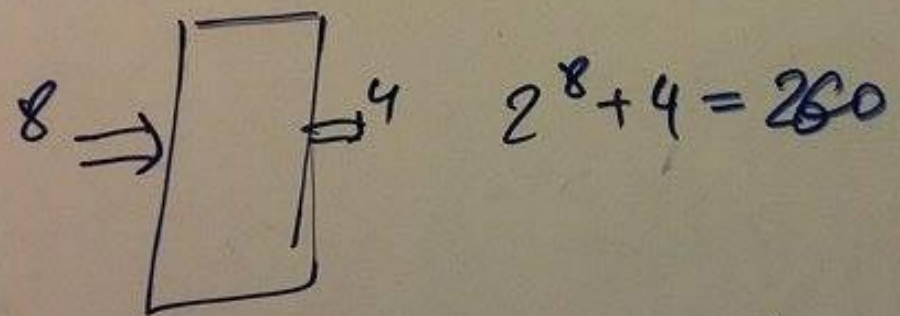 8 4 2⁸ + 4 = 260